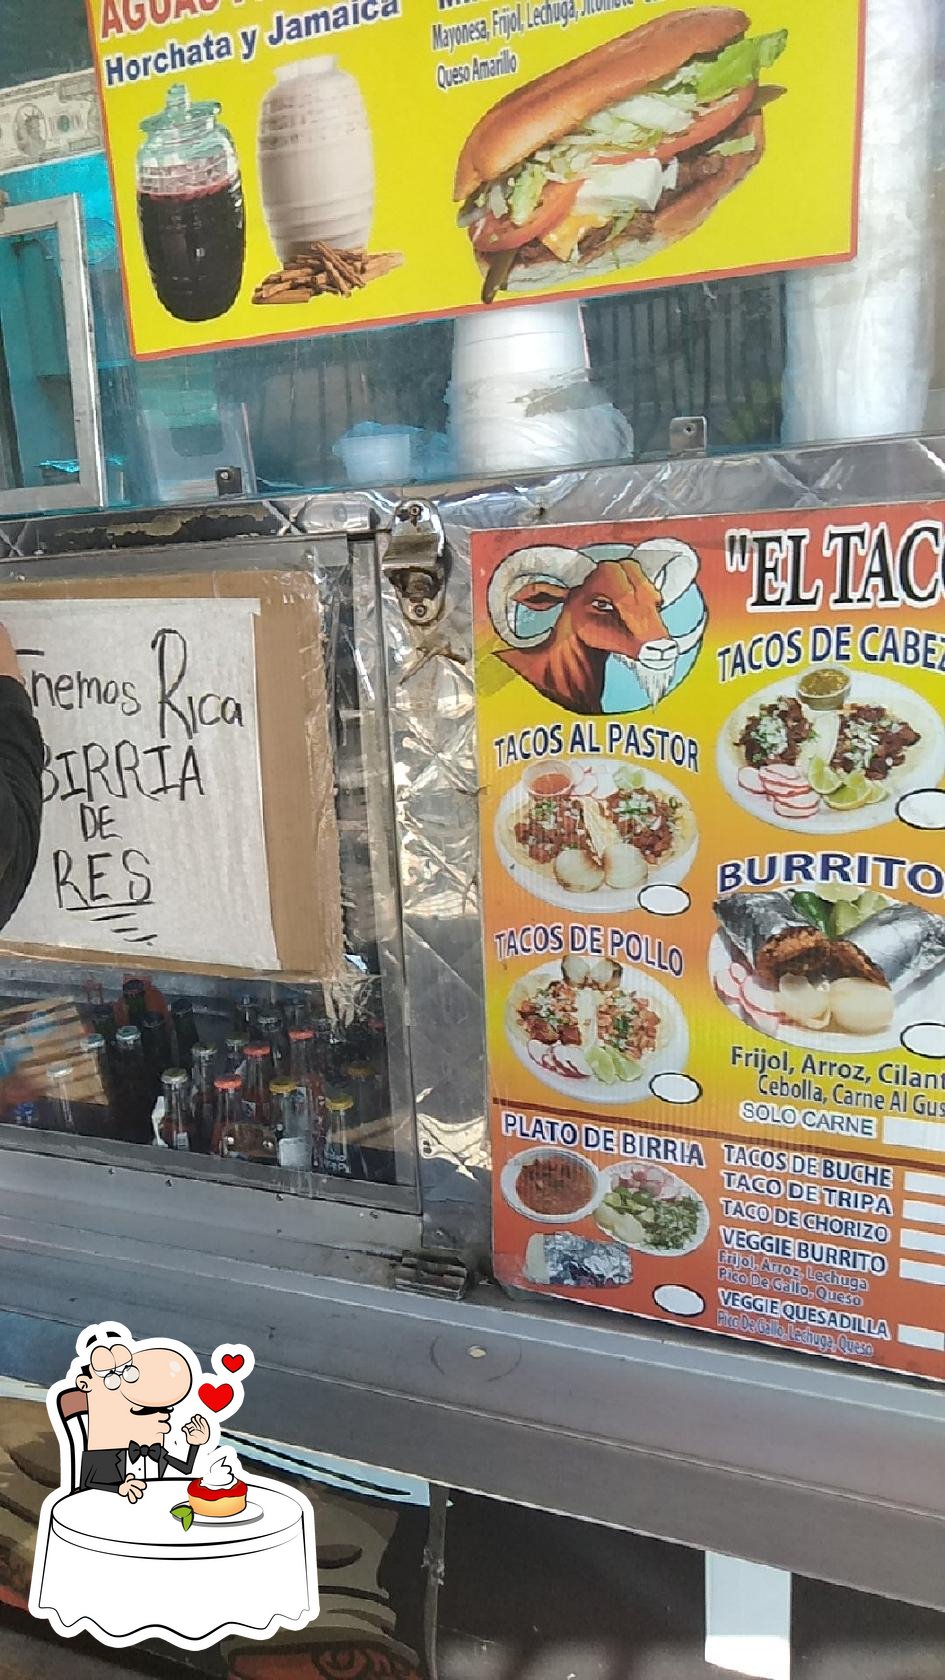 Horchata y Jamaica
Mayonesa, Frijol, Lechuga,
Queso Amarillo
Rica
BIRRIA
DE
RES
"EL
TACOS DE
TACOS AL PASTOR
TACOS DE POLLO
BURRITO
Frijol, Arroz,
Cebolla, Carne Al
SOLO CARNE
PLATO DE BIRRIA
TACOS DE BUCHE
TACO DE TRIPA
TACO DE CHORIZO
VEGGIE BURRITO
Frijol, Arroz, Lechuga
Pico De Gallo, Queso
VEGGIE QUESADILLA
Pico De Gallo, Lechuga, Queso